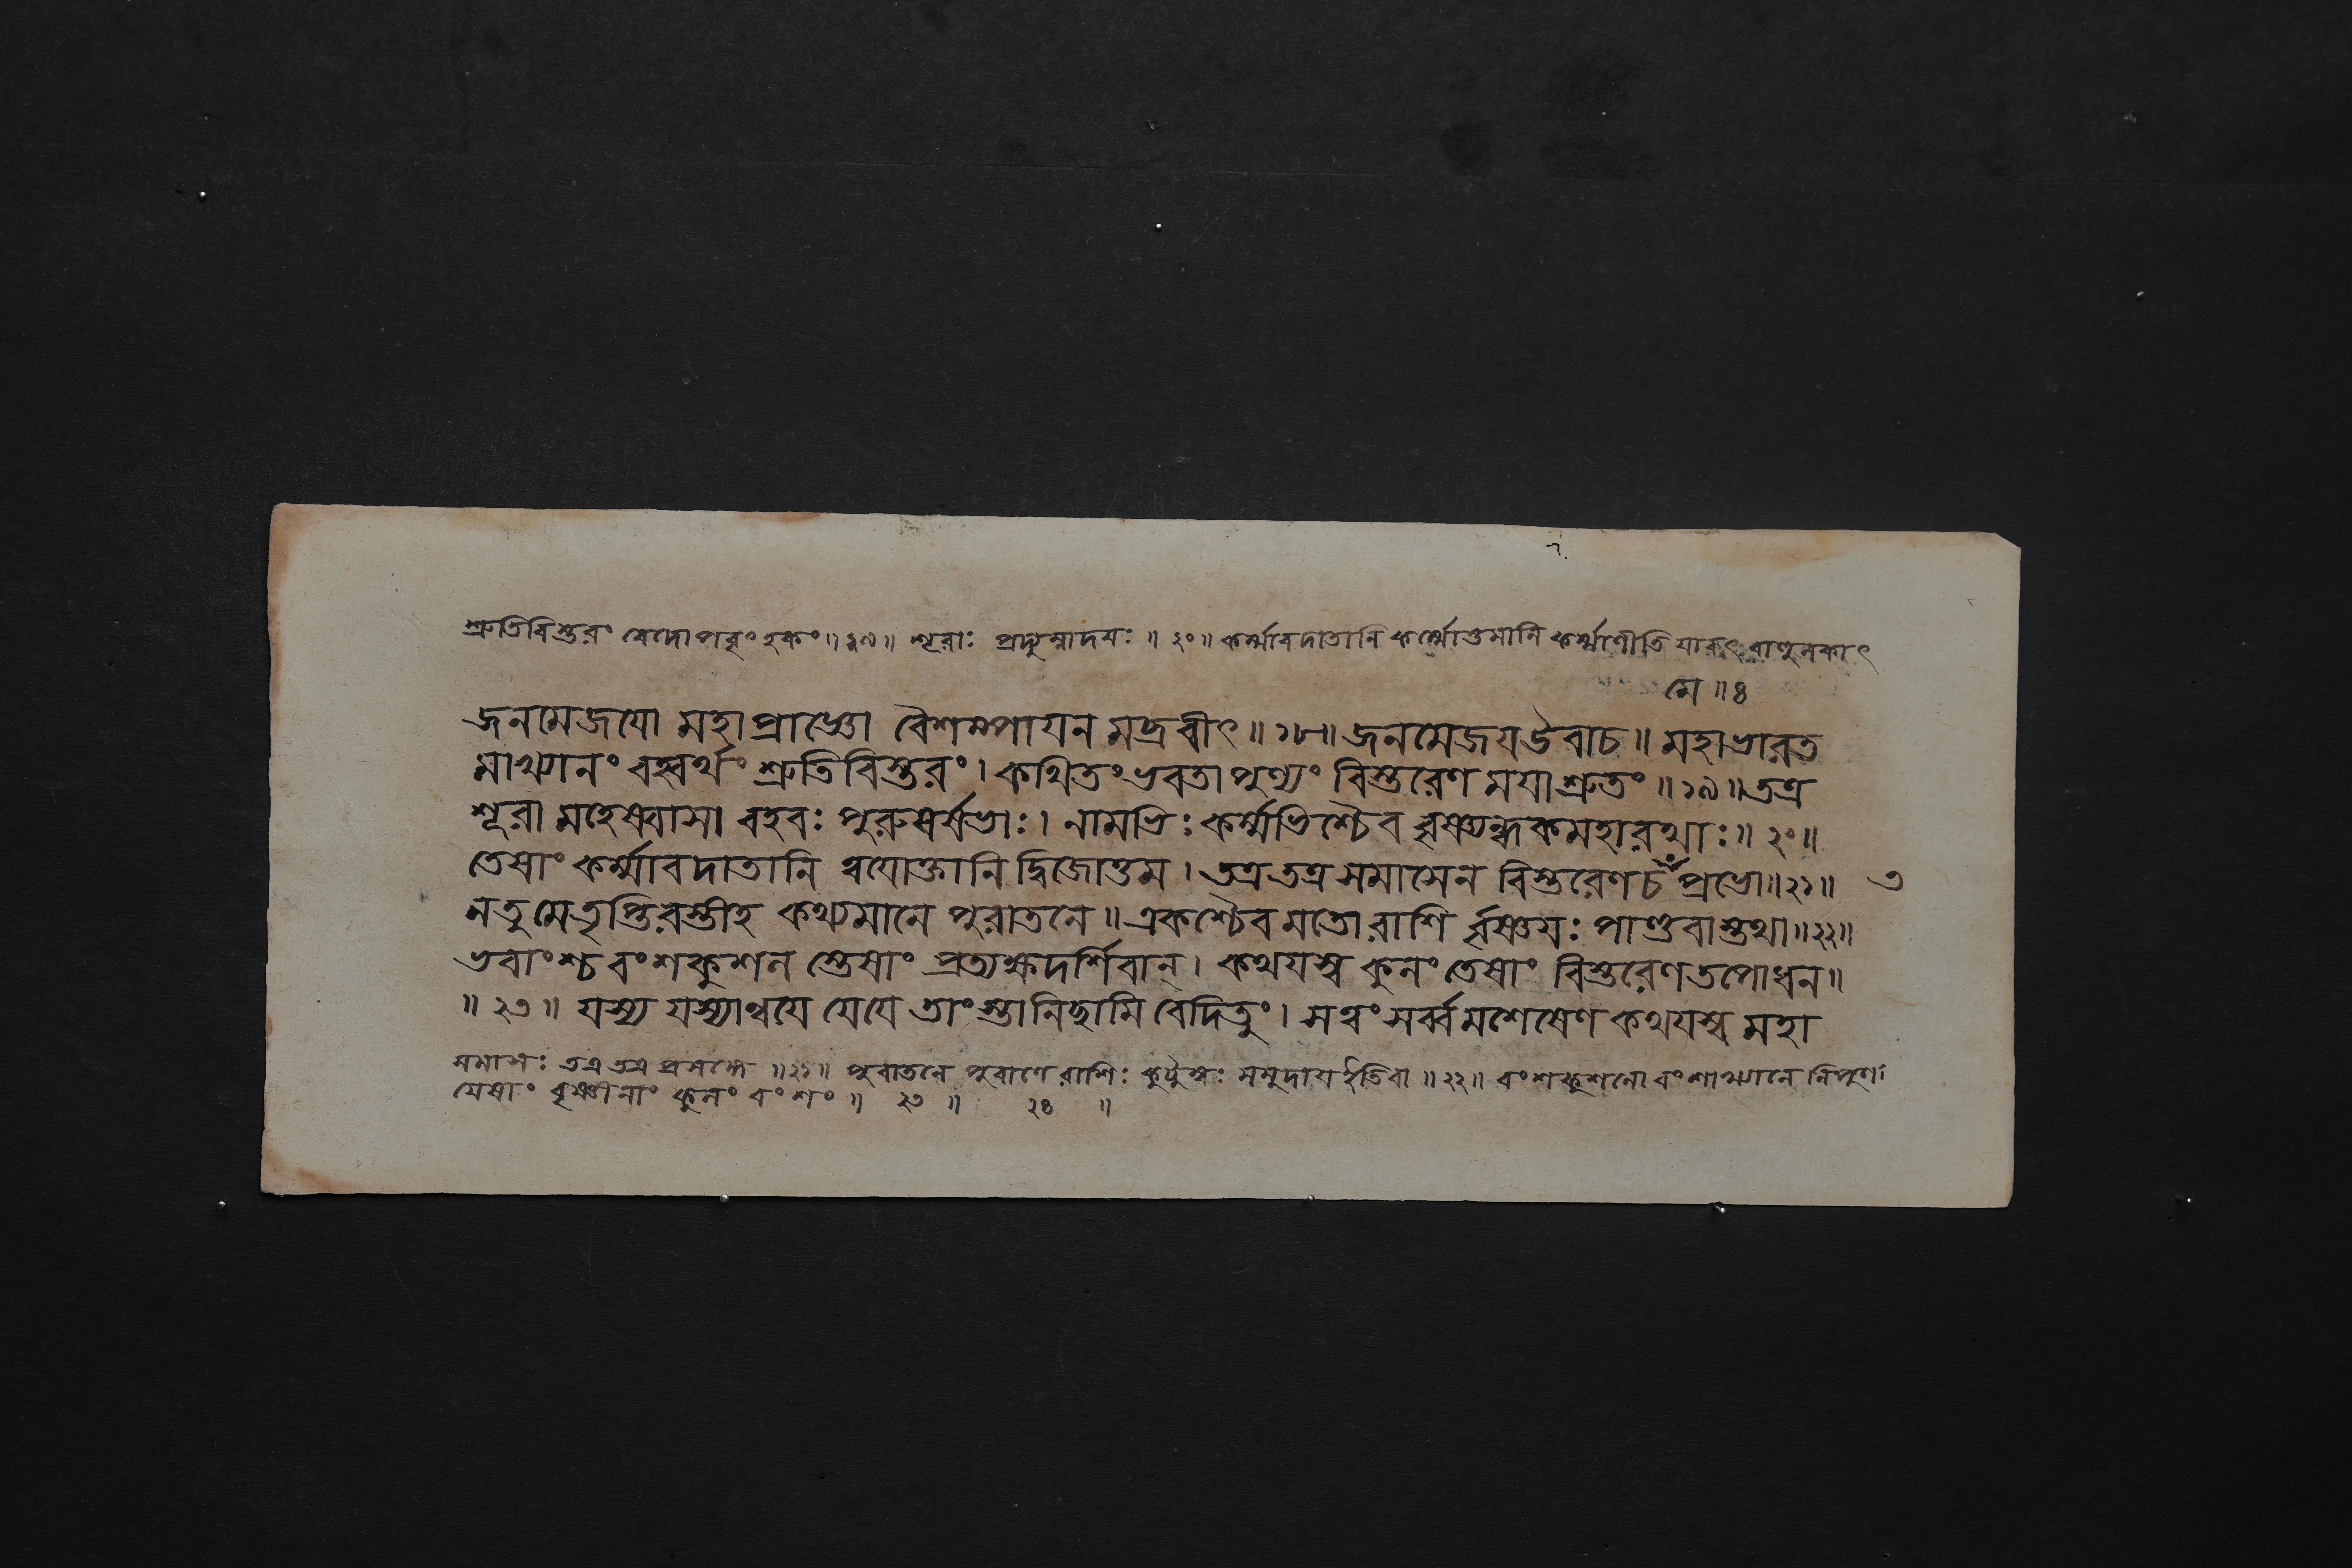 শ্রুতিবিস্তরং বেদোপবৃংহকং॥১৯॥ শূরাঃ প্রদ্যুম্নাদয়ঃ॥২০॥ কর্ম্মাবদাতানি কর্ম্মোত্তমানি কর্ম্মাণীতি
মে॥৪
জনমেজযো মহাপ্রাজ্ঞো বৈশম্পাযন মব্রবীৎ॥১৮॥ জনমেজয উবাচ॥ মহাভারত
মাখ্যানং বহ্বর্থং শ্রুতিবিস্তরং। কথিতং ভবতা পুণ্যং বিস্তরেণ মযা শ্রুতং॥১৯॥ তত্র
শূরা মহেষ্বাসা বহবঃ পুরুষর্ষভাঃ। নামভিঃ কর্ম্মভিশ্চৈব বৃষ্ণ্যন্ধকমহারথাঃ॥২০॥
তেষাং কর্ম্মাবদাতানি ত্বযোক্তানি দ্বিজোত্তম। তত্র তত্র সমাসেন বিস্তরেণ চ প্রভো॥২১॥ ৩
ন তু মে তৃপ্তিরস্তীহ কথ্যমানে পুরাতনে॥ একশ্চৈব মতো রাশি র্বৃষ্ণযঃ পাণ্ডবাস্তথা॥২২॥
ভবাংশ্চ বংশকুশল স্তেষাং প্রত্যক্ষদর্শিবান্। কথযস্ব কুলং তেষাং বিস্তরেণ তপোধন॥
॥২৩॥ যস্য যস্যান্বযে যে যে তাংস্তানিছামি বেদিতুং। সত্বং সর্ব্বমশেষেণ কথযস্ব মহা
সমাসঃ তত্র তত্র প্রসঙ্গে॥২১॥ পুরাতনে পুরাণে রাশিঃ সমুদায ইতি বা॥২২॥ বংশকুশলো বংশাখ্যানে নিপুণঃ
যেষাং বৃষ্ণীনাং কুলং বংশং॥ ২৩॥ ২৪॥